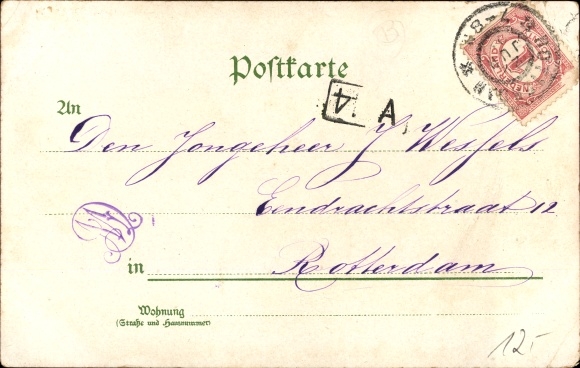 Postkarte
4 A
An
Den Jongeheer J Wessels
Eendrachtstraat 12
in Rotterdam
Wohnung
(Straße und Hausnummer)
12,-